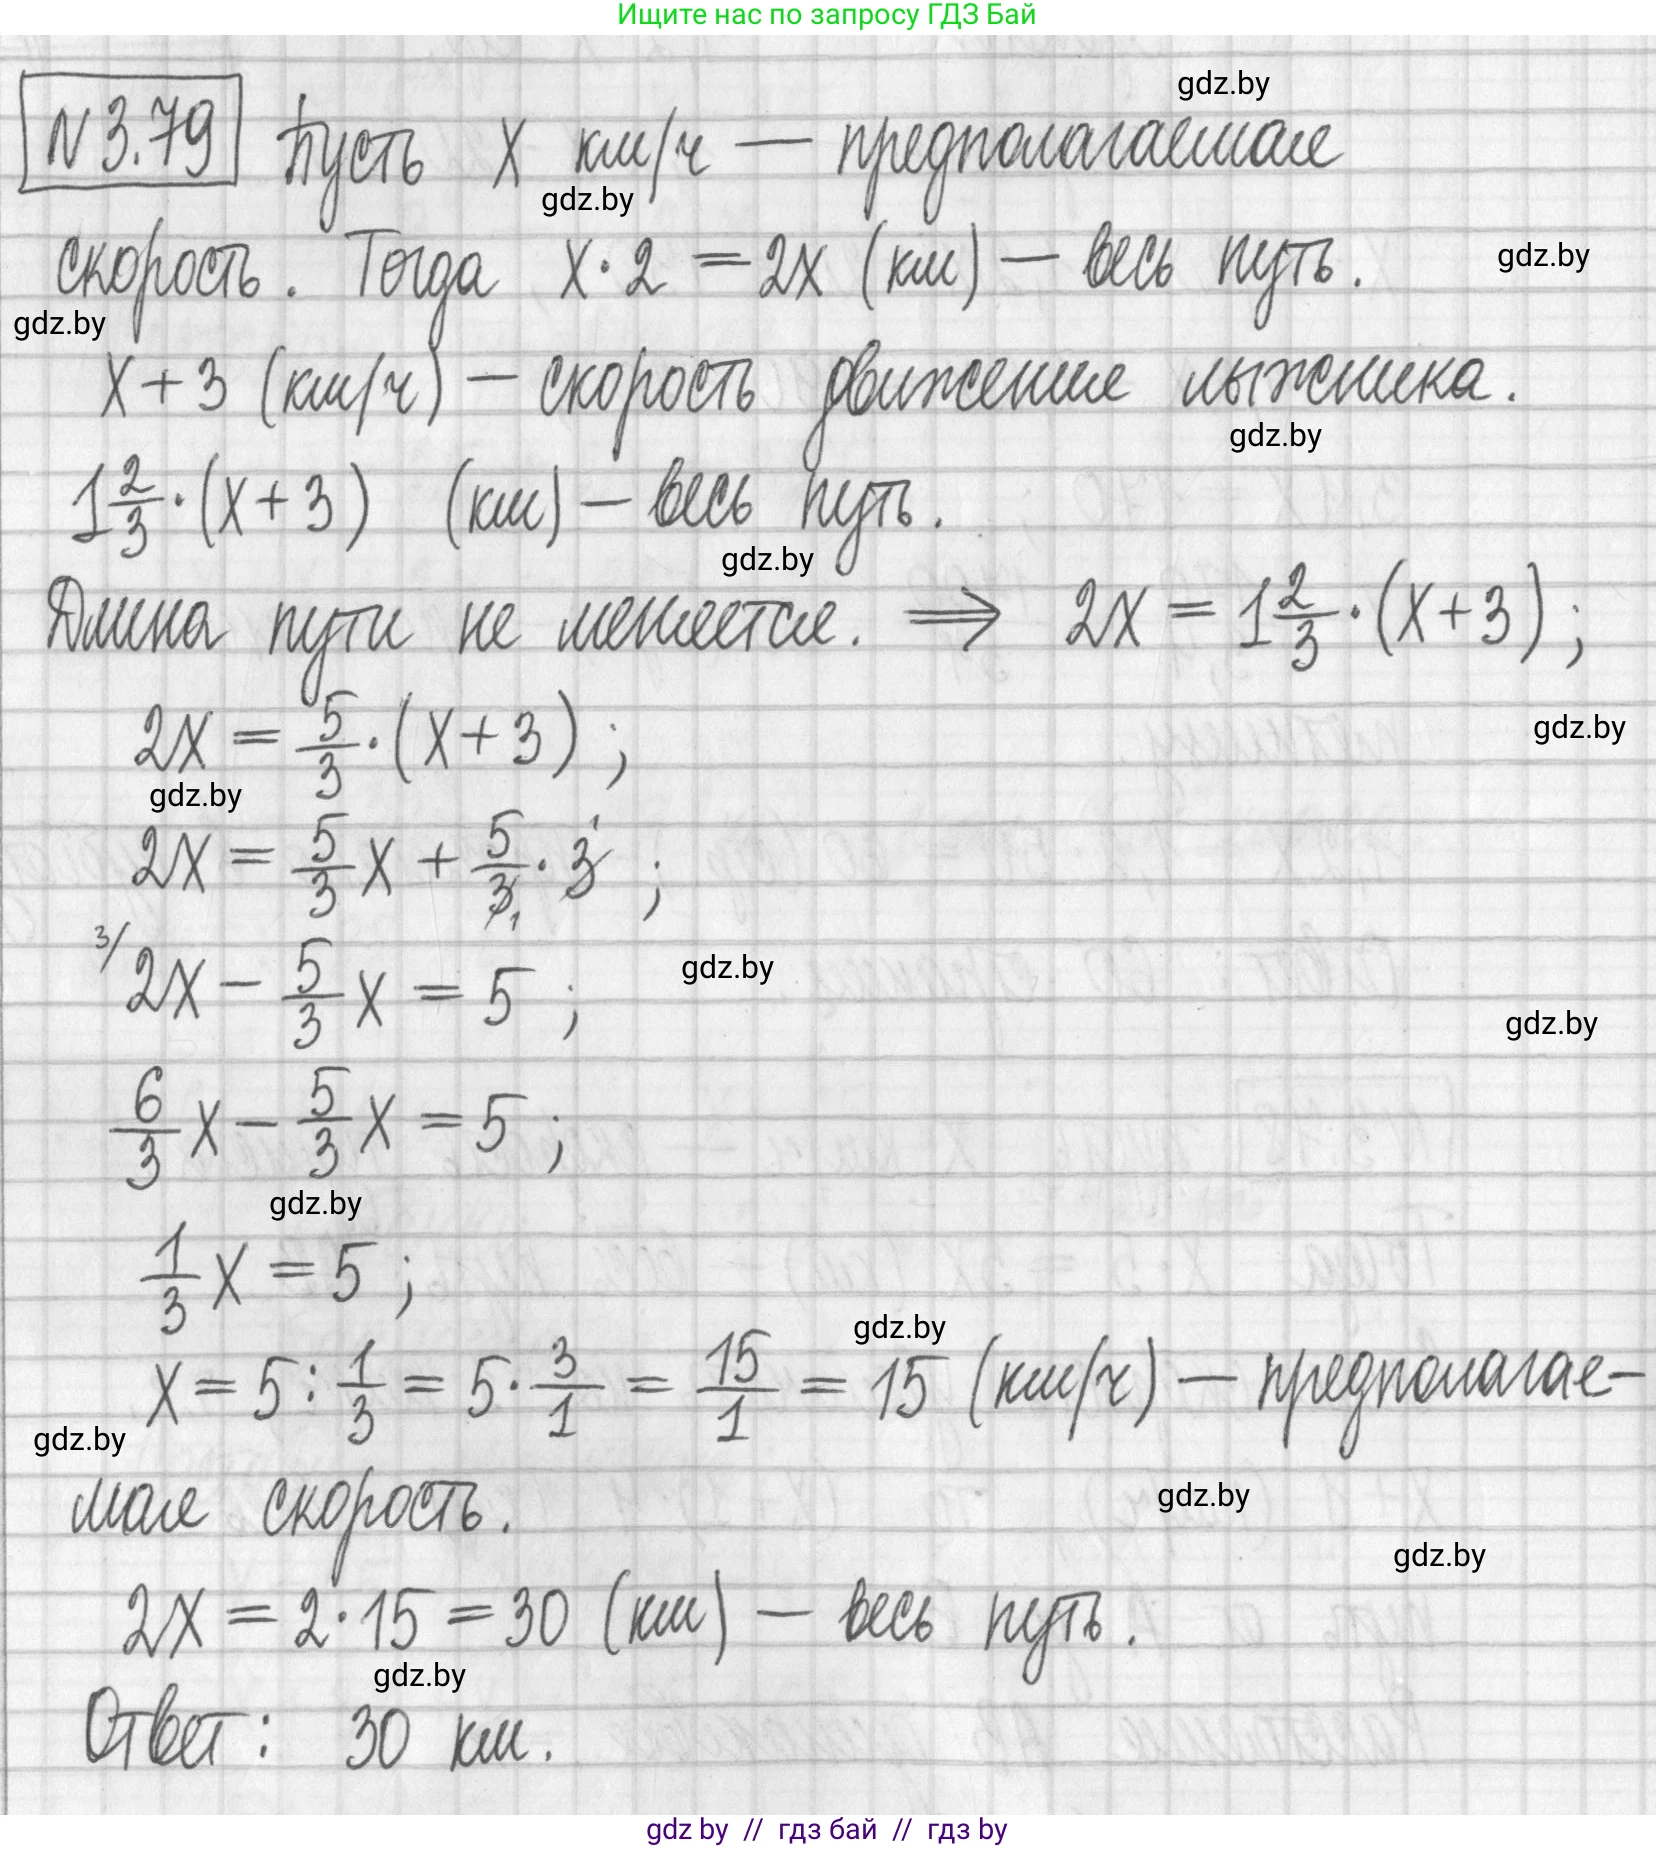 Ищите нас по запросу ГДЗ Бай
gdz.by
N 3.79 Пусть x км/ч — предполагаемая
gdz.by
скорость. Тогда x · 2 = 2x (км) — весь путь.
gdz.by
gdz.by
x + 3 (км/ч) — скорость движения лыжника.
gdz.by
1 2/3 · (x + 3) (км) — весь путь.
gdz.by
Длина пути не меняется. ⟹ 2x = 1 2/3 · (x + 3) ;
2x = 5/3 · (x + 3) ;
gdz.by
gdz.by
2x = 5/3 x + 5/3 1 · 3 1 ;
3/ 2x − 5/3 x = 5 ;
gdz.by
gdz.by
6/3 x − 5/3 x = 5 ;
gdz.by
1/3 x = 5 ;
gdz.by
x = 5 : 1/3 = 5 · 3/1 = 15/1 = 15 (км/ч) — предполагае-
gdz.by
мая скорость.
gdz.by
gdz.by
2x = 2 · 15 = 30 (км) — весь путь.
gdz.by
Ответ: 30 км.
gdz by // гдз бай // гдз by